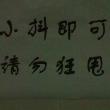 小抖即可
请勿狂甩